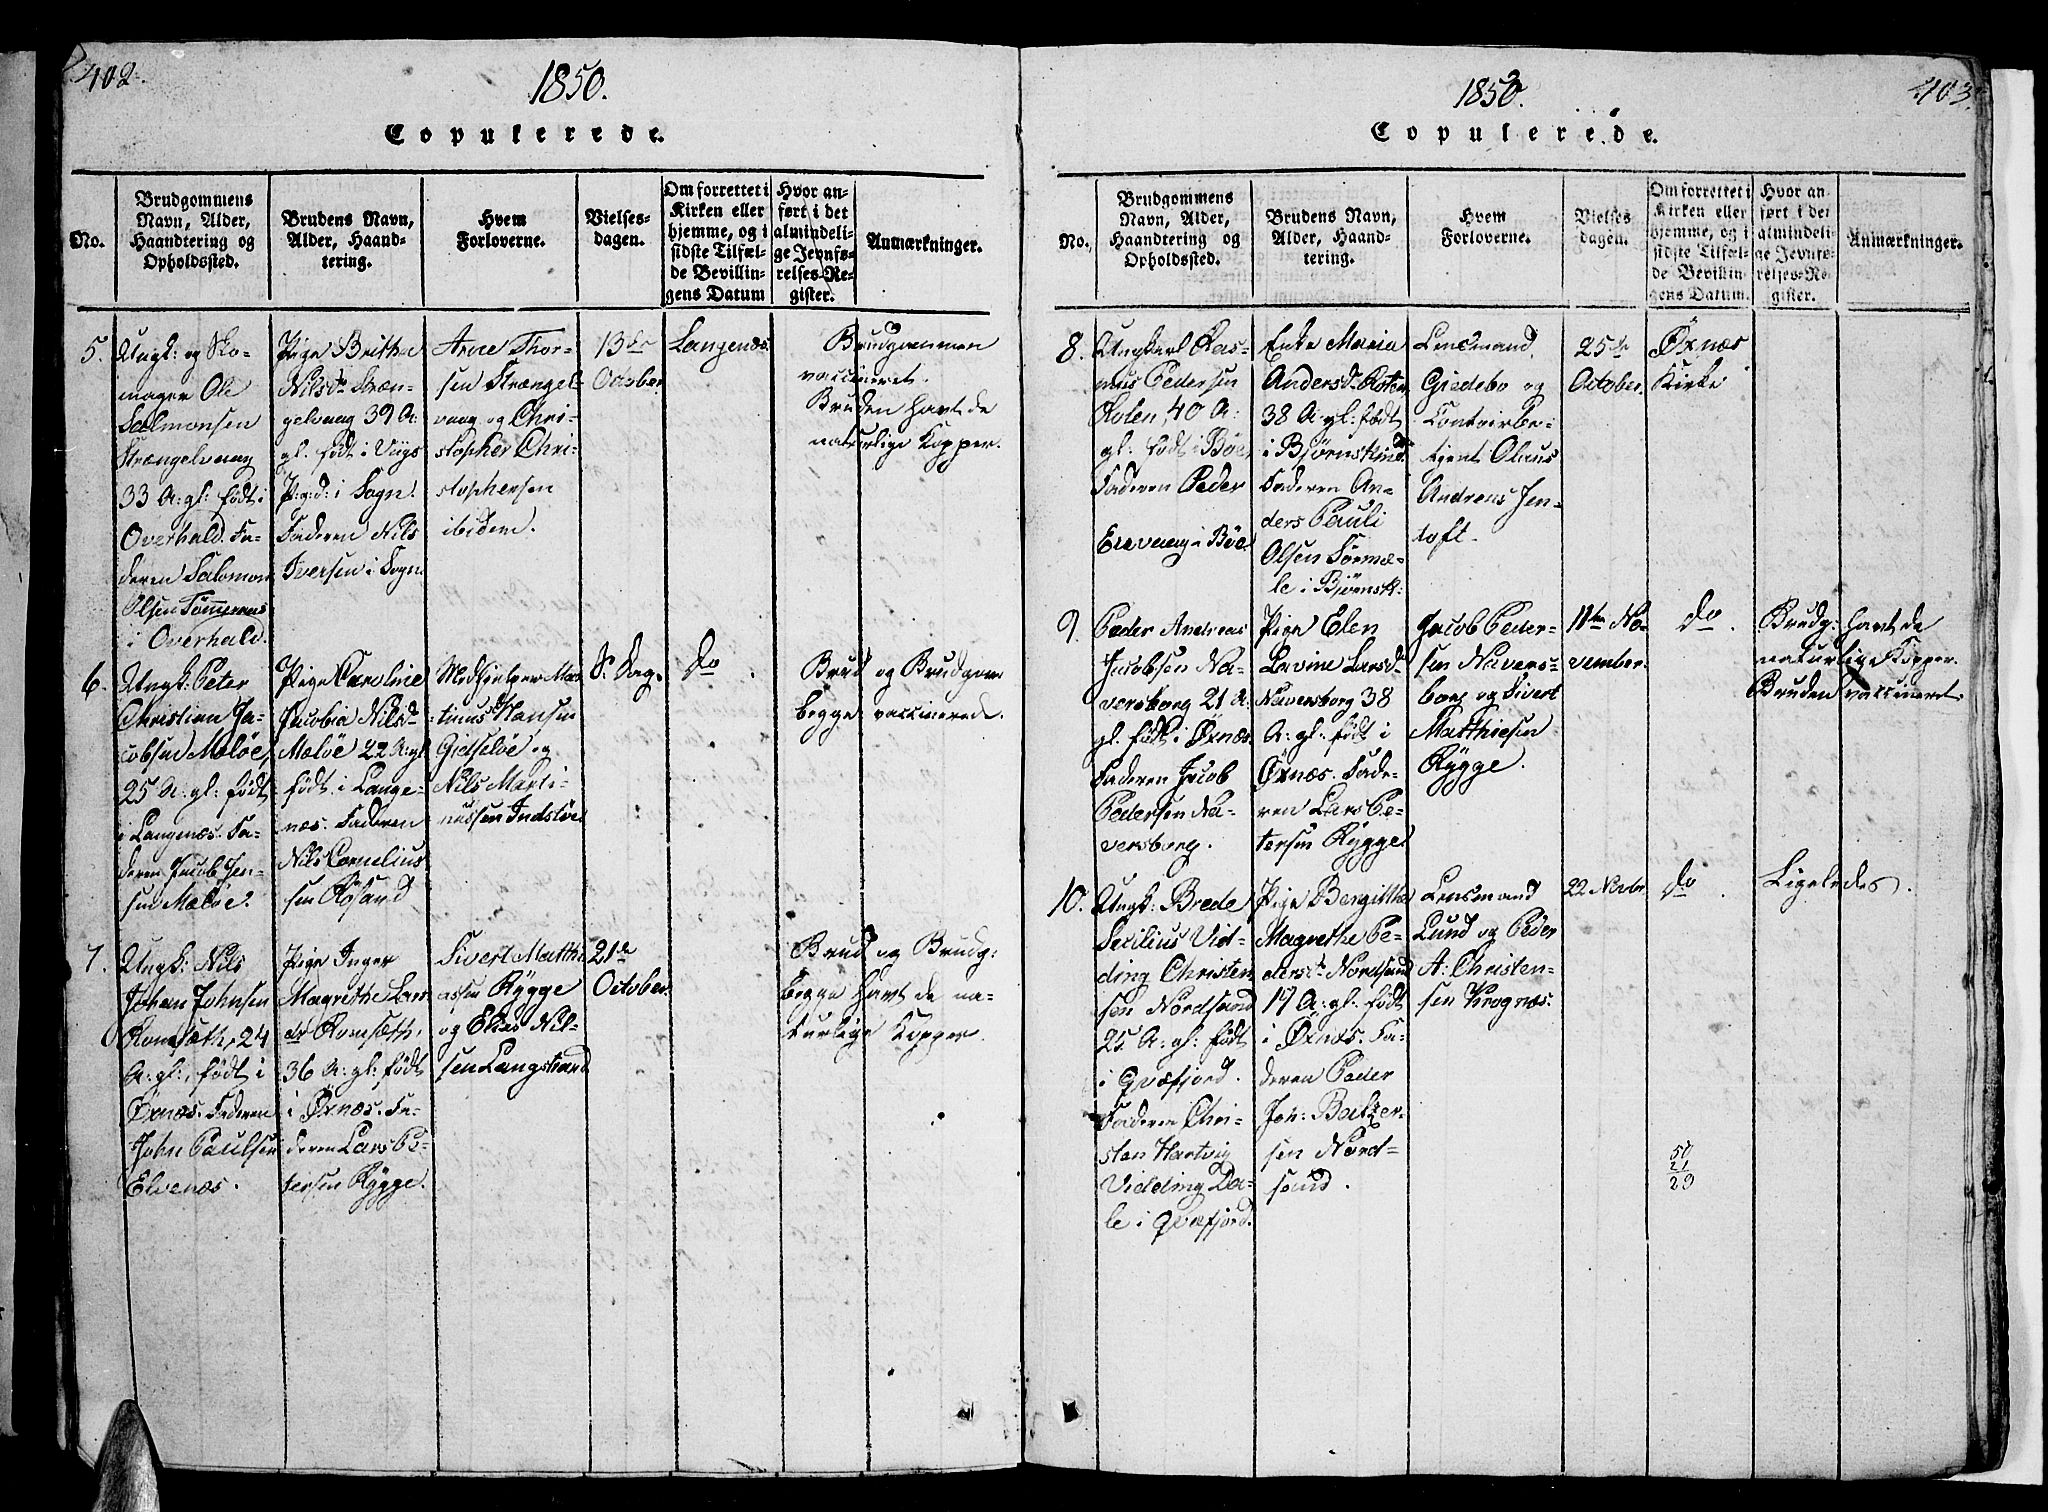 402.
1850.
Copulerede.
No.
Brudgommens
Navn, Alder,
Haandtering og
Opholdssted.
Brudens Navn,
Alder, Haand-
tering.
Hvem
Forloverne.
Vielses-
dagen.
Om forrettet i
Kirken eller
hjemme, og i
sidste Tilfæl-
de Bevillin-
gens Datum
Hvor an-
ført i det
almindeli-
ge Jevnfø-
relses-Re-
gister.
Anmærkninger.
5.
Ungk: og Sko-
mager Ole
Salmonsen
Strængelvaag
33 A: gl: født i
Overhald. Fa-
deren Salomon
Olsen Tømmeraas
i Overhald.
Pige Brithe
Nilsdr Stræn-
gelvaag 39 A:
gl. født i Viigs
P:g:d: i Sogn.
Faderen Nils
Iversen i Sogn
Arne Thor-
sen Strængel-
vaag og Chri-
stopher Chri-
stophersen
ibidem.
13de
October
Langenæs.
Brudgommen
vaccineret.
Bruden havt de
naturlige Kopper.
6.
Ungk: Peter
Christian Ja-
cobsen Meløe,
25 A: gl: født
i Langenæs. Fa-
deren Jacob Jen-
sen Meløe.
Pige Caroline
Jacobia Nilsdr
Meløe 22 A: gl.
født i Lange-
næs. Faderen
Nils Cornelius-
sen Røsand
Medhjelper Mar-
tinus Hansen
Gidsløe og
Nils Marti-
nussen Indsløe
S. Dag.
do.
Brud og Brudgom
begge vaccinerede.
7.
Ungk: Nils
Johan Johnsen
Romsæth, 24
A: gl:, født i
Øxnæs. Faderen
John Paulsen
Elvenæs.
Pige Inger
Magrethe Lars-
dr Romsæth,
36 A: gl: født
i Øxnæs. Fa-
deren Lars Pe-
tersen Rygge.
Sivert Matthi-
assen Rygge
og Elias Nil-
sen Langstrand
21de
October.
Brud og Brudg:
begge havt de na-
turlige Kopper.
403.
1850.
Copulerede.
No.
Brudgommens
Navn, Alder,
Haandtering og
Opholdssted.
Brudens Navn,
Alder, Haand-
tering.
Hvem
Forloverne.
Vielses
dagen.
Om forrettet i
Kirken eller
hjemme, og i
sidste Tilfæl-
de Bevillin-
gens Datum.
Hvor an-
ført i det
almindeli-
ge Jevnfø-
relses-Re-
gister.
Anmærkninger.
8.
Ungkarl Ras-
mus Pedersen
Roten, 40 A:
gl. født i Bøe,
Faderen Peder
i Bøe
Enke Maria
Andersdr Roten,
38 A: gl: født
i Bjørnskind.
Faderen An-
ders Pauli
Olsen Sørmæ-
le i Bjørnsk:
Lensmand
Giedebo og
Contoirbe-
tjent Olaus
Andreas Jen-
toft.
25de
October.
Øxnæs
Kirke
9.
Peder Andreas
Jacobsen Na-
versborg 21 A.
gl. født i Øxnæs.
Faderen Jacob
Pedersen Na-
versborg.
Pige Elen
Lavine Larsdr
Naversborg 38
A: gl: født i
Øxnæs. Fade-
ren Lars Pe-
tersen Rygge
Jacob Peder-
sen Navers-
borg og Sivert
Matthiesen
Rygge.
11te No-
vember.
do.
Brudg: havt de
naturlige Kopper.
Bruden vaccineret.
10.
Ungk: Brede
Secilius Vid-
ding Christen-
sen Nordsand
25 A: gl: født
i Qvæfjord.
Faderen Chri-
sten Hartvig
Vidding Da-
le i Qvæfjord.
Pige Bergitthe
Magrethe Pe-
dersdr Nordsand
17 A: gl: født
i Øxnæs. Fa-
deren Peder
Joh: Baltzer-
sen Nord-
sand.
Lensmand
Lund og Peder
A: Christen-
sen Krognæs.
22 Novbr.
do.
Ligeledes.
50
21
29